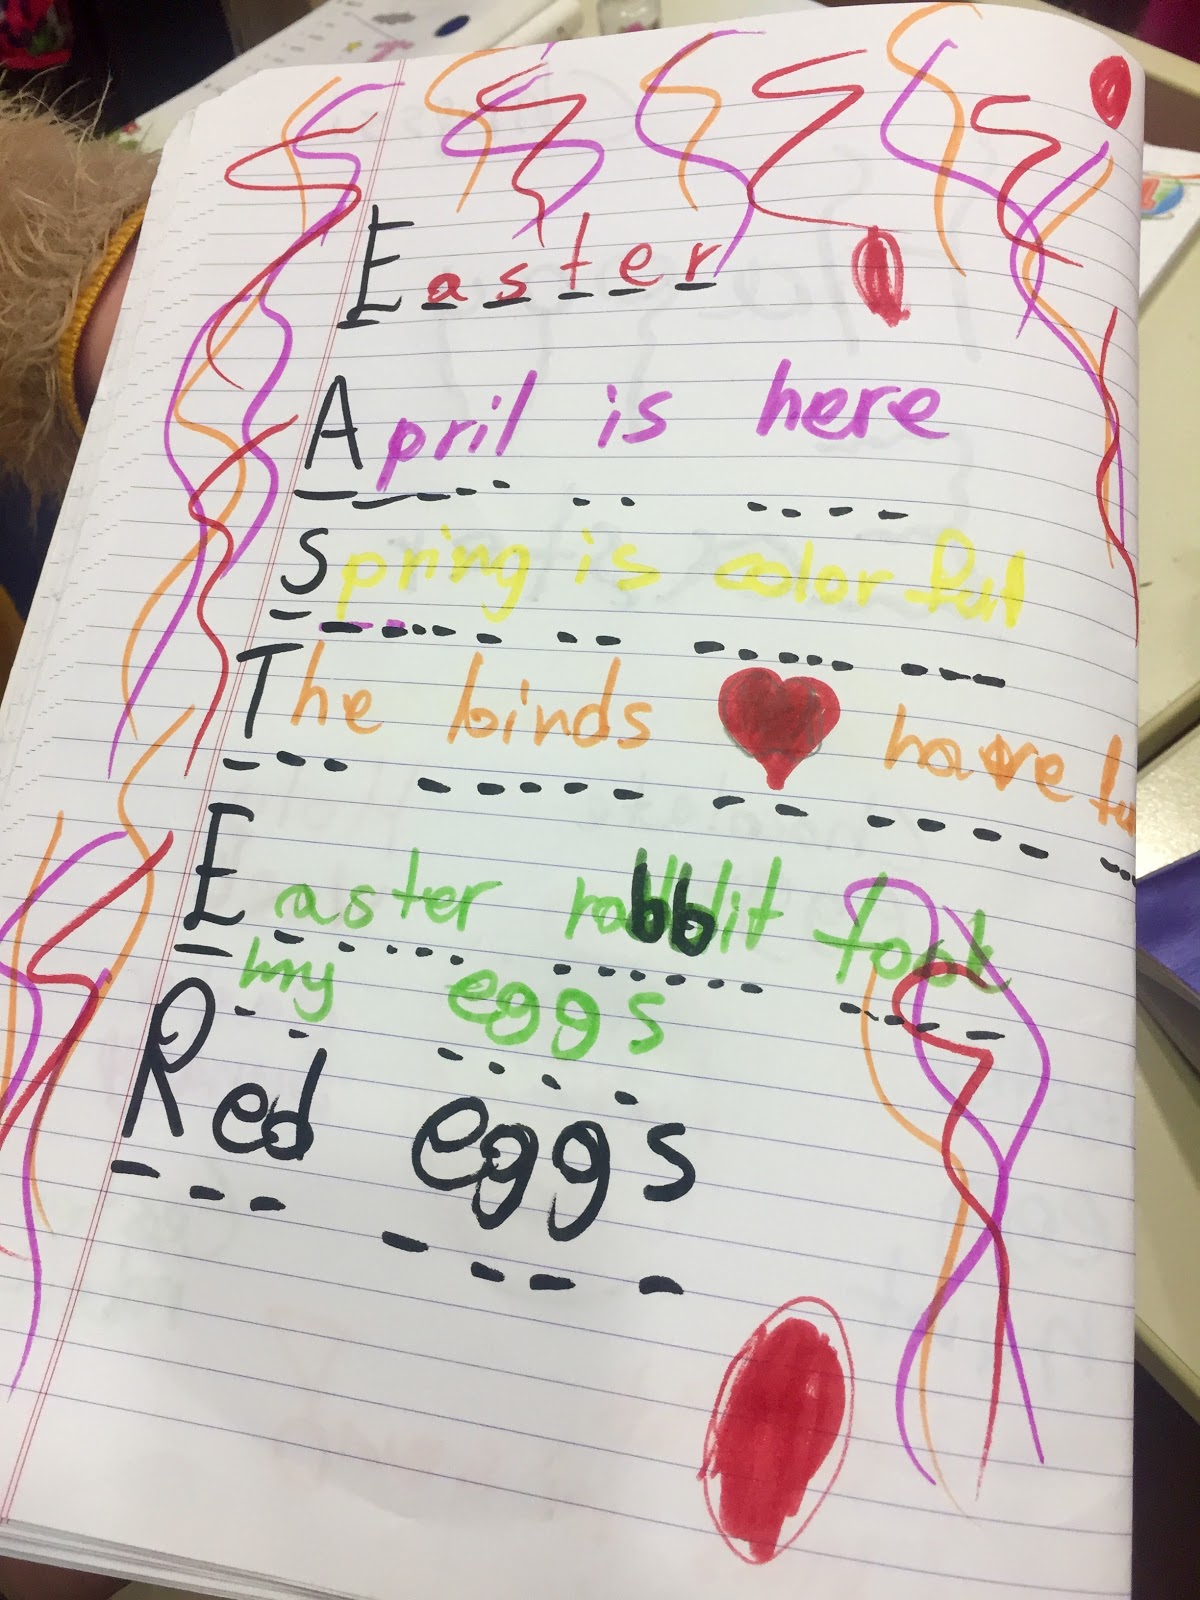 Easter
April is here
Spring is colorful
The birds have
Easter rabbit took
my eggs
Red eggs